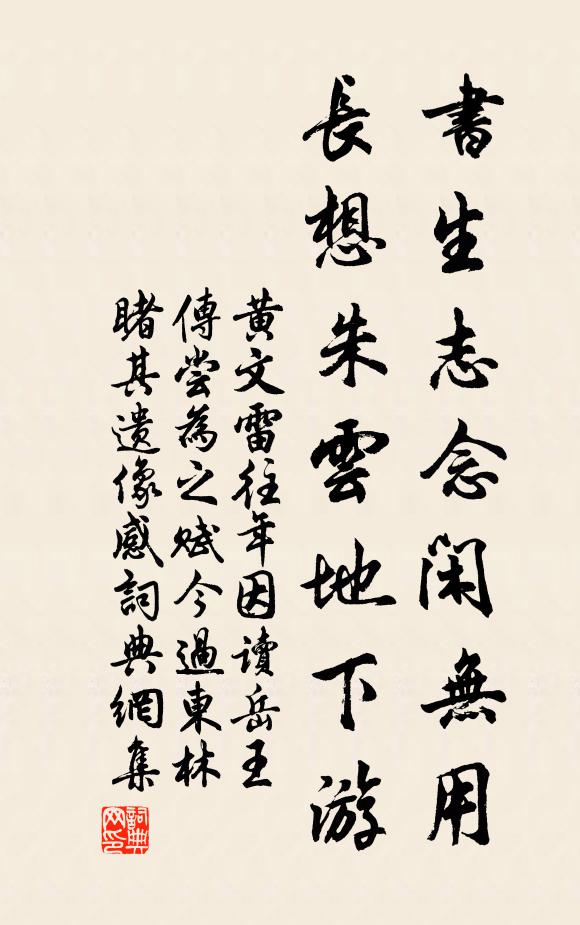 書生志念閑無用
長想朱雲地下游
黄文雷往年因讀岳王
傳嘗為之賦今過東林
睹其遺像感詞典網集
詞典
网印